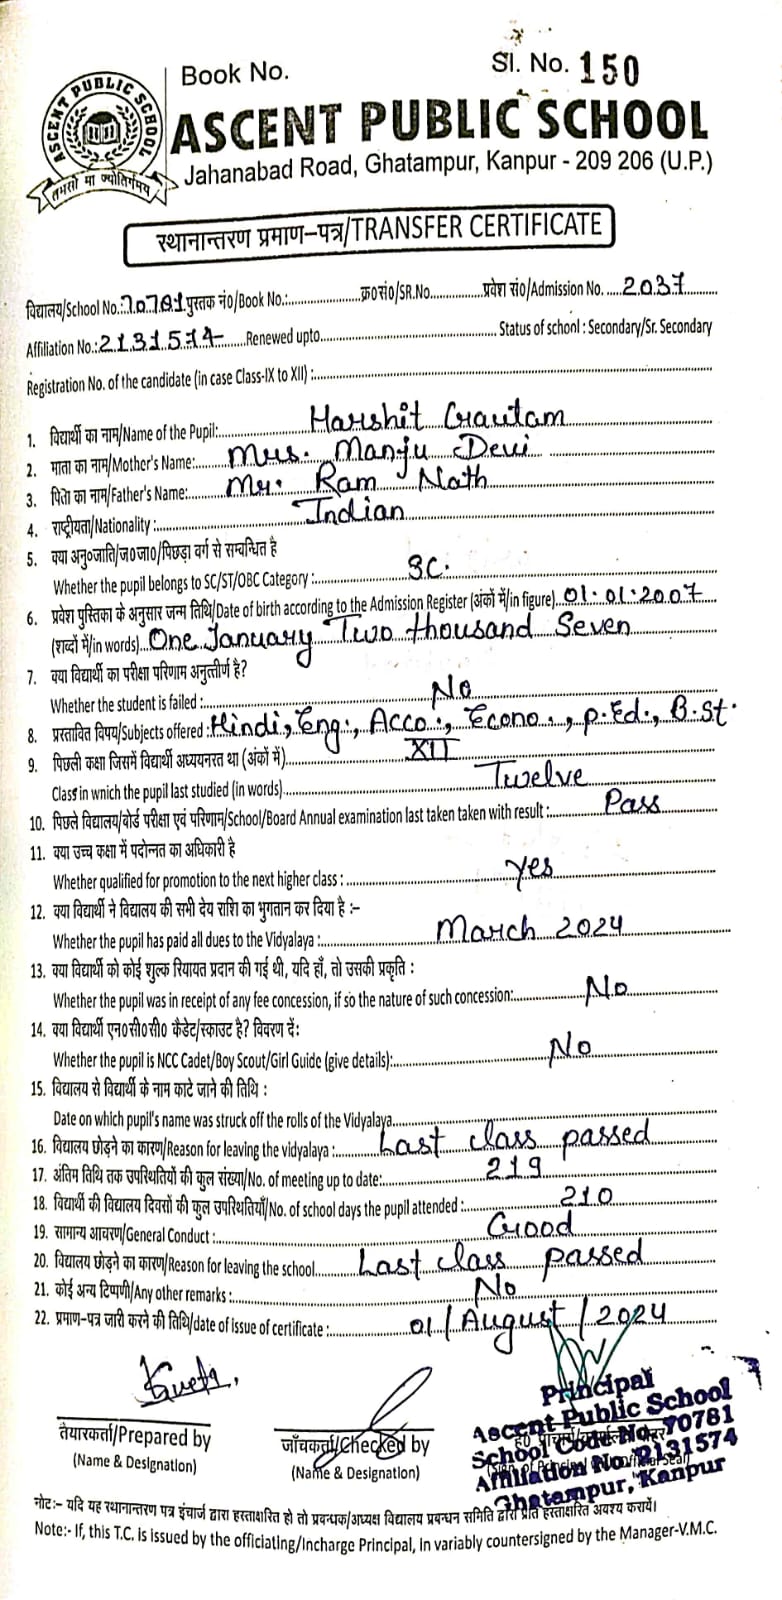 Book No. Sl. No. 150
ASCENT PUBLIC SCHOOL
तमसो मा ज्योतिर्गमय
ASCENT PUBLIC SCHOOL
Jahanabad Road, Ghatampur, Kanpur - 209 206 (U.P.)
स्थानान्तरण प्रमाण–पत्र/TRANSFER CERTIFICATE
विद्यालय/School No.: 70781 पुस्तक नं०/Book No.:.................. क्र०सं०/SR.No............... प्रवेश सं०/Admission No. ..... 2037
Affiliation No.: 2131574 ......Renewed upto.................................... Status of school : Secondary/Sr. Secondary
Registration No. of the candidate (in case Class-IX to XII) :
1. विद्यार्थी का नाम/Name of the Pupil: Harshit Gautam
2. माता का नाम/Mother's Name: Mrs. Manju Devi
3. पिता का नाम/Father's Name: Mr. Ram Nath
4. राष्ट्रीयता/Nationality : Indian
5. क्या अनु०जाति/ज०जा०/पिछड़ा वर्ग से सम्बन्धित है
Whether the pupil belongs to SC/ST/OBC Category : SC.
6. प्रवेश पुस्तिका के अनुसार जन्म तिथि/Date of birth according to the Admission Register (अंकों में/in figure) 01.01.2007
(शब्दों में/in words) One January Two thousand Seven
7. क्या विद्यार्थी का परीक्षा परिणाम अनुत्तीर्ण है?
Whether the student is failed : No
8. प्रस्तावित विषय/Subjects offered : Hindi, Eng., Acco., Econo., P.Ed., B.St.
9. पिछली कक्षा जिसमें विद्यार्थी अध्ययनरत था (अंकों में) XII
Class in wnich the pupil last studied (in words) Twelve
10. पिछले विद्यालय/बोर्ड परीक्षा एवं परिणाम/School/Board Annual examination last taken taken with result : Pass
11. क्या उच्च कक्षा में पदोन्नत का अधिकारी है
Whether qualified for promotion to the next higher class : Yes
12. क्या विद्यार्थी ने विद्यालय की सभी देय राशि का भुगतान कर दिया है :–
Whether the pupil has paid all dues to the Vidyalaya : March 2024
13. क्या विद्यार्थी को कोई शुल्क रियायत प्रदान की गई थी, यदि हाँ, तो उसकी प्रकृति :
Whether the pupil was in receipt of any fee concession, if so the nature of such concession: No
14. क्या विद्यार्थी एन०सी०सी० कैडेट/स्काउट है? विवरण दें:
Whether the pupil is NCC Cadet/Boy Scout/Girl Guide (give details): No
15. विद्यालय से विद्यार्थी के नाम काटे जाने की तिथि :
Date on which pupil's name was struck off the rolls of the Vidyalaya
16. विद्यालय छोड़ने का कारण/Reason for leaving the vidyalaya : Last class passed
17. अंतिम तिथि तक उपस्थितियों की कुल संख्या/No. of meeting up to date: 219
18. विद्यार्थी की विद्यालय दिवसों की कुल उपस्थितियाँ/No. of school days the pupil attended : 210
19. सामान्य आचरण/General Conduct : Good
20. विद्यालय छोड़ने का कारण/Reason for leaving the school Last class passed
21. कोई अन्य टिप्पणी/Any other remarks : No
22. प्रमाण–पत्र जारी करने की तिथि/date of issue of certificate : 01/August/2024
तैयारकर्ता/Prepared by
(Name & Designation)
जाँचकर्ता/Checked by
(Name & Designation)
Principal
Ascent Public School
School Code No. 70781
Affiliation No. 2131574
Ghatampur, Kanpur
नोट:– यदि यह स्थानान्तरण पत्र इंचार्ज द्वारा हस्ताक्षरित हो तो प्रबन्धक/अध्यक्ष विद्यालय प्रबन्धन समिति द्वारा प्रति हस्ताक्षरित अवश्य करायें।
Note:- If, this T.C. is issued by the officiating/Incharge Principal, in variably countersigned by the Manager-V.M.C.